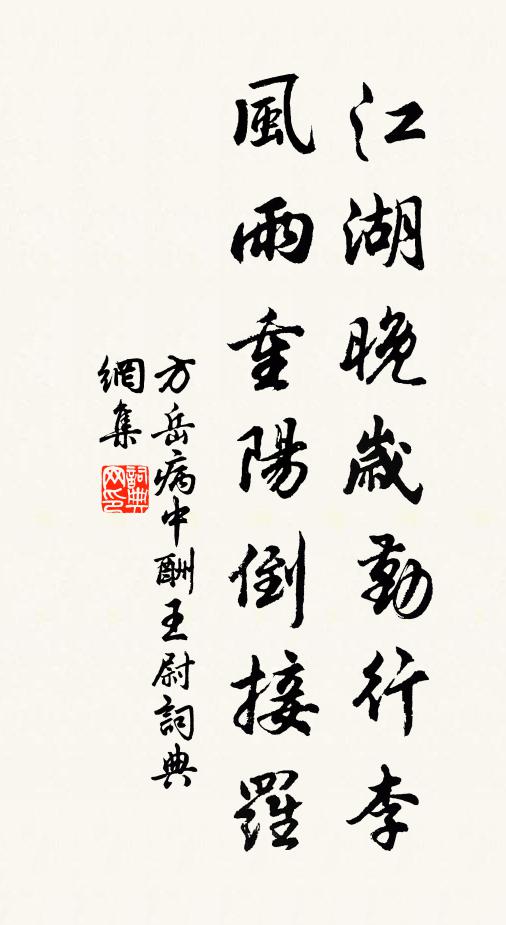 江湖晚歲勤行李
風雨重陽倒接羅
方岳病中酬王尉詞典
網集
詞典網印